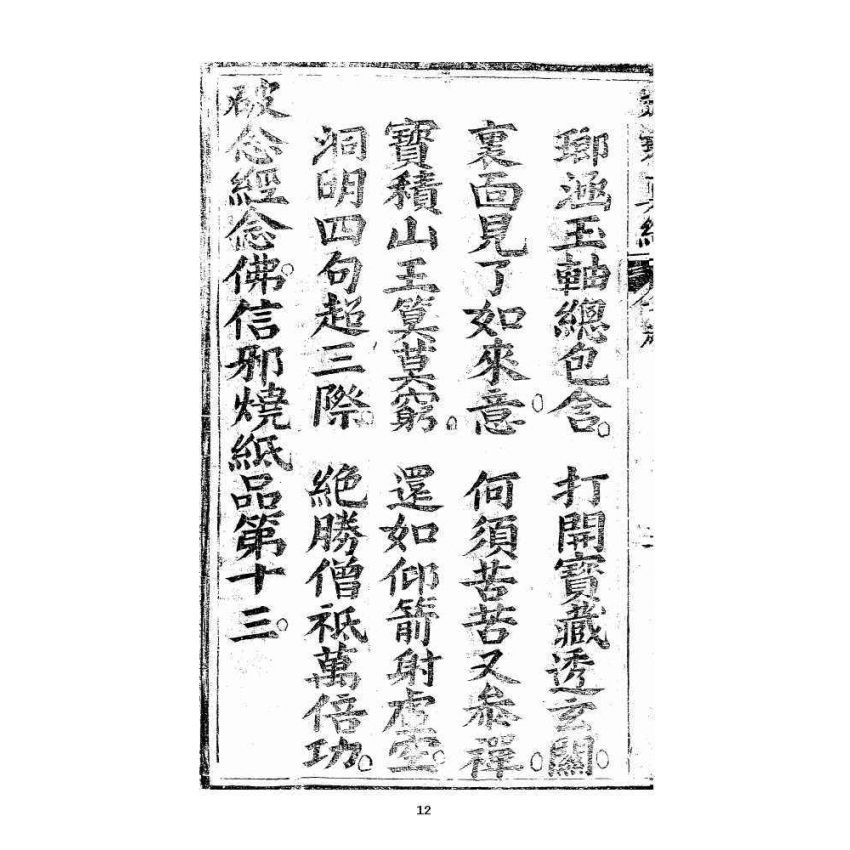 瑯涵玉軸總包含。打開寶藏透玄關。
裏面見了如來意。何須苦苦又叅禪。
寶積山王筭莫窮。還如仰箭射虛空。
洞明四句超三際。絶勝僧祇萬倍功。
破念經念佛。信邪燒紙品第十三。
12